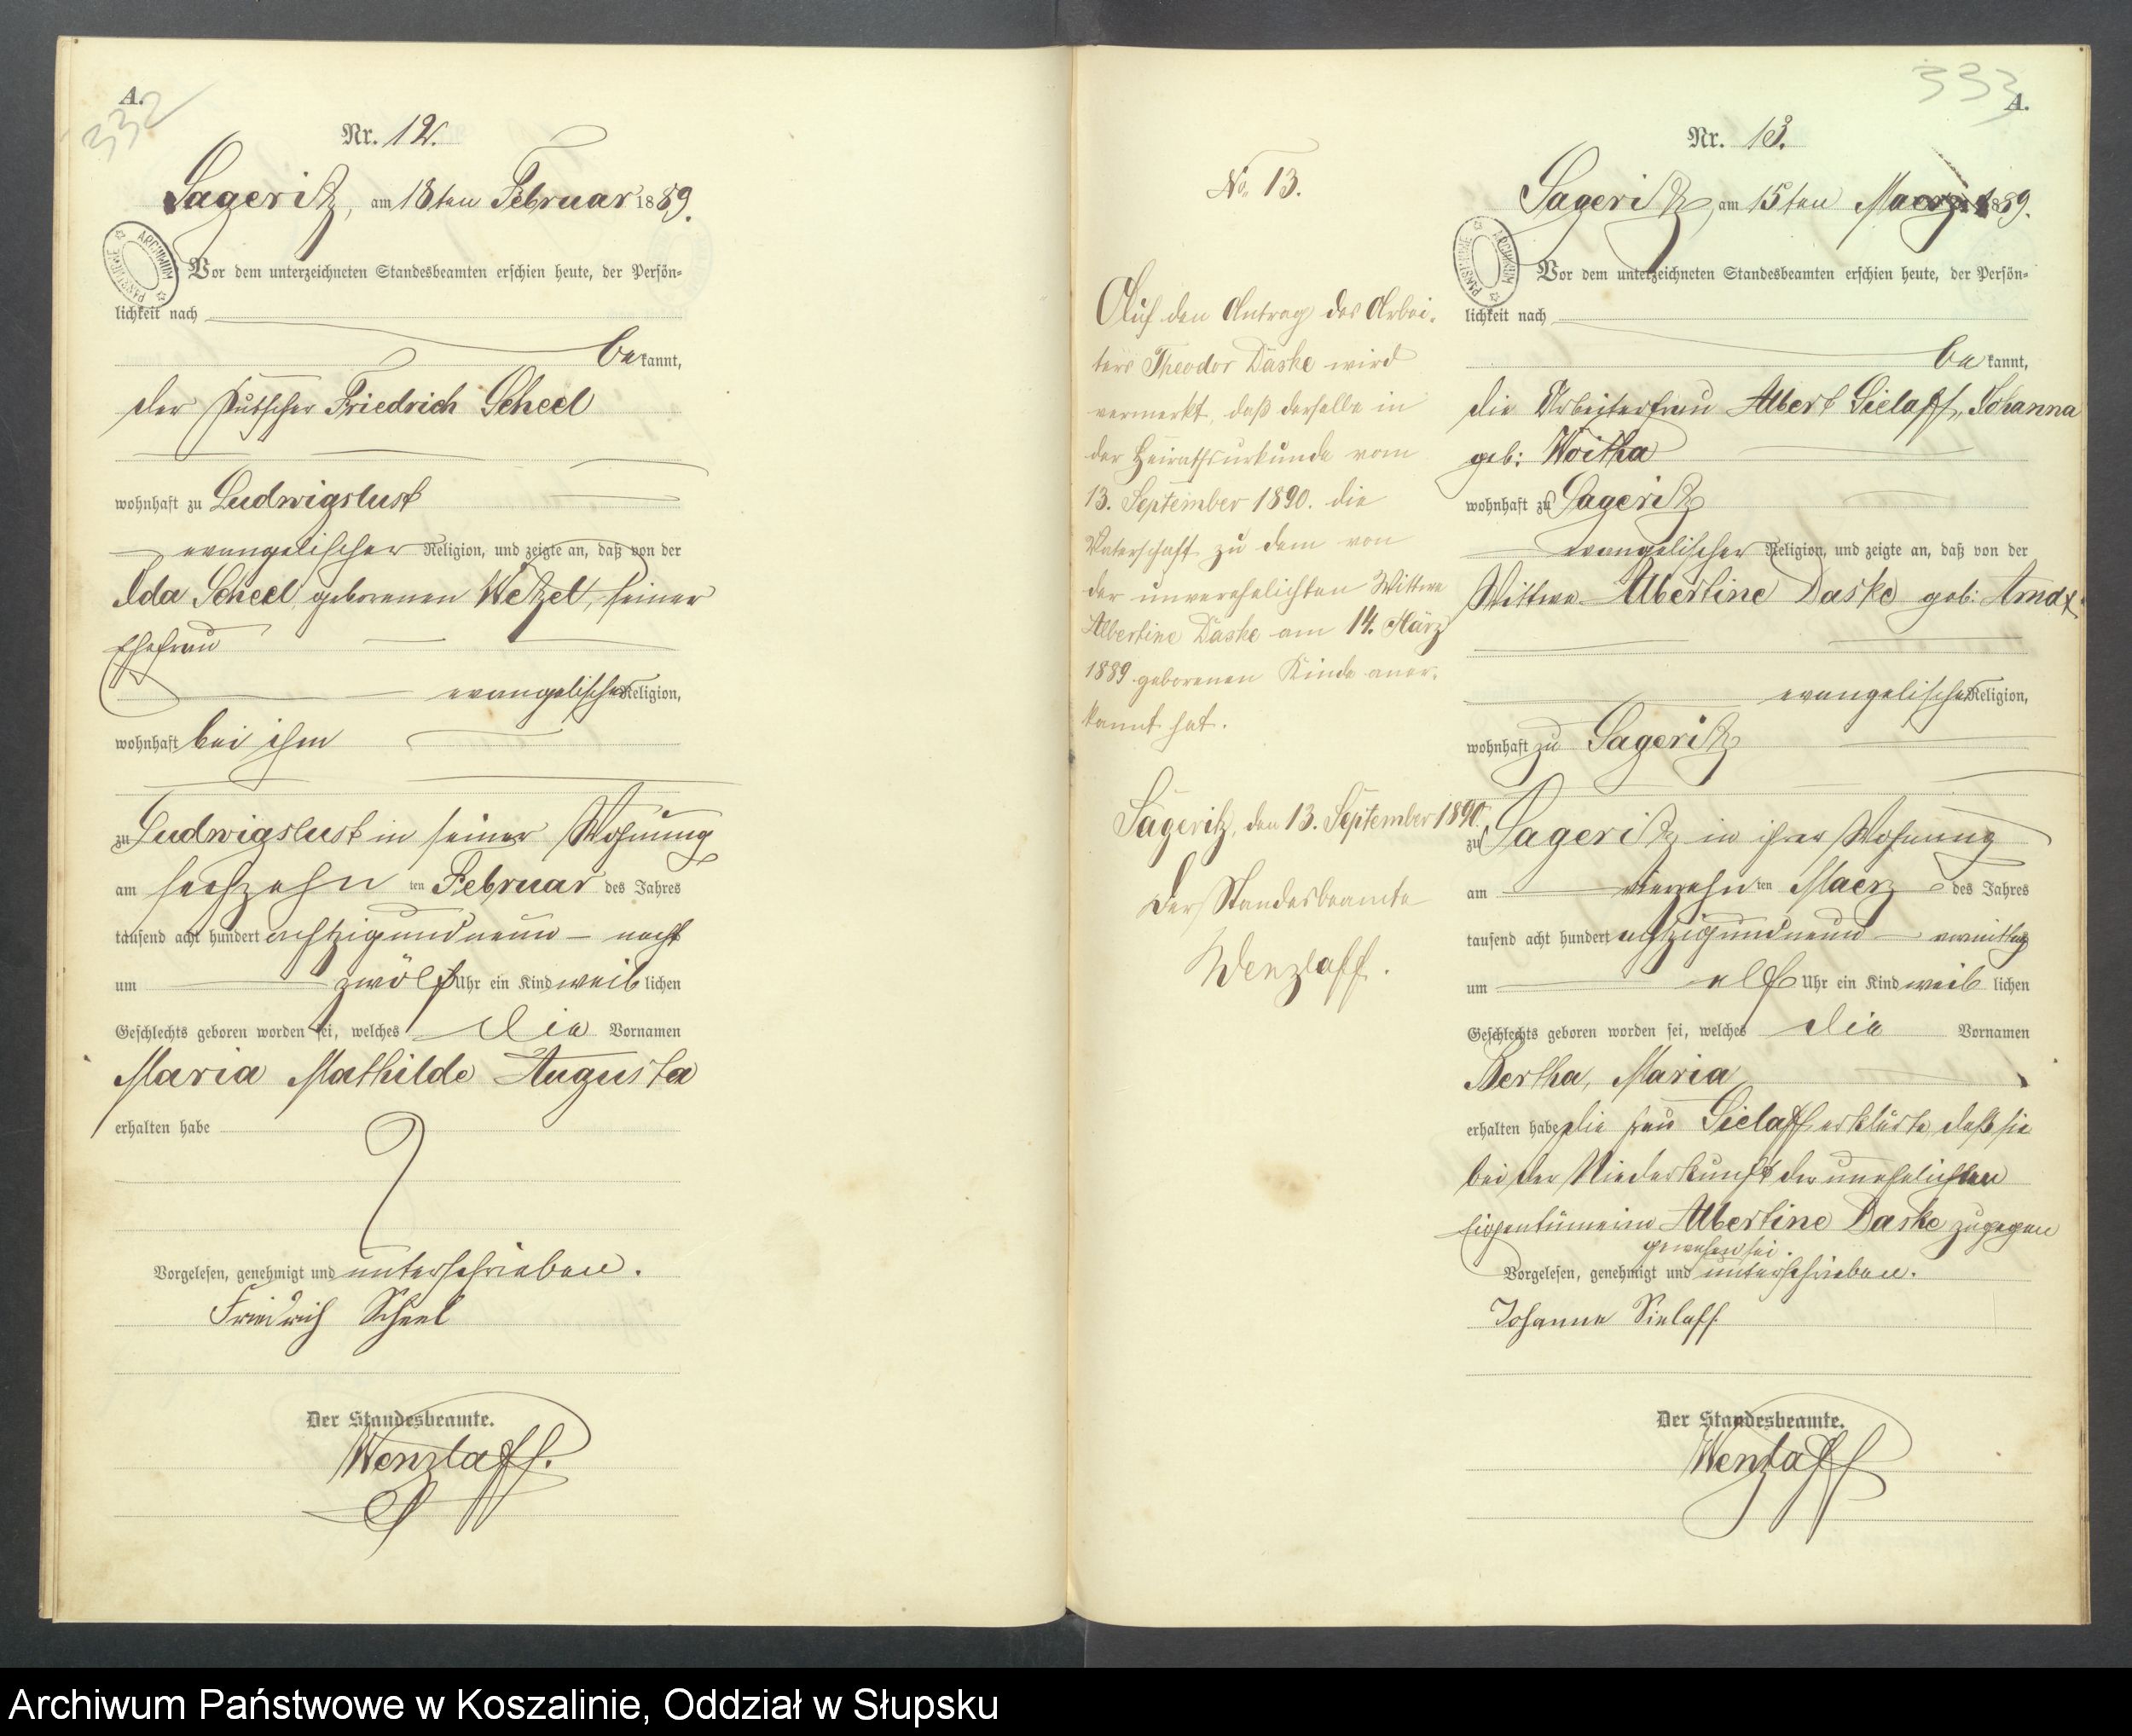 A.
332
Nr. 12.
Sageritz, am 18ten Februar 1889.
ARCHIWUM PAŃSTWOWE
Vor dem unterzeichneten Standesbeamten erschien heute, der Persön-
lichkeit nach
bekannt,
der Kutscher Friedrich Scheel
wohnhaft zu Ludwigslust
evangelischer Religion, und zeigte an, daß von der
Ida Scheel geborenen Wetzel, seiner
Ehefrau
evangelischer Religion,
wohnhaft bei ihm
zu Ludwigslust in seiner Wohnung
am sechzehnten Februar des Jahres
tausend acht hundert achtzigundneun – nachts
um zwölf Uhr ein Kind weiblichen
Geschlechts geboren worden sei, welches die Vornamen
Maria Mathilde Augusta
erhalten habe
Vorgelesen, genehmigt und unterschrieben.
Friedrich Scheel
Der Standesbeamte.
Wenzlaff.
No. 13.
Auf den Antrag des Arbei-
ters Theodor Däske wird
vermerkt, daß derselbe in
der Heirathsurkunde vom
13. September 1890. die
Vaterschaft zu dem von
der unverehelichten Wittwe
Albertine Däske am 14. März
1889 geborenen Kinde aner-
kannt hat.
Sageritz, den 13. September 1890.
Der Standesbeamte
Wenzlaff.
333
A.
Nr. 13.
Sageritz, am 15ten Maerz 1889.
ARCHIWUM PAŃSTWOWE
Vor dem unterzeichneten Standesbeamten erschien heute, der Persön-
lichkeit nach
bekannt,
die Arbeiterfrau Albert Sielaff, Johanna
geb: Woitha
wohnhaft zu Sageritz
evangelischer Religion, und zeigte an, daß von der
Wittwe Albertine Daske geb:
evangelischer Religion,
wohnhaft zu Sageritz
zu Sageritz in ihrer Wohnung
am vierzehnten Maerz des Jahres
tausend acht hundert achtzigundneun –
um elf Uhr ein Kind weiblichen
Geschlechts geboren worden sei, welches die Vornamen
Bertha, Maria
erhalten habe, die Frau Sielaff erklärte, daß sie
bei der Niederkunft der unehelichen
Albertine Daske zugegen
gewesen sei.
Vorgelesen, genehmigt und unterschrieben.
Johanne Sielaff.
Der Standesbeamte.
Wenzlaff
Archiwum Państwowe w Koszalinie, Oddział w Słupsku